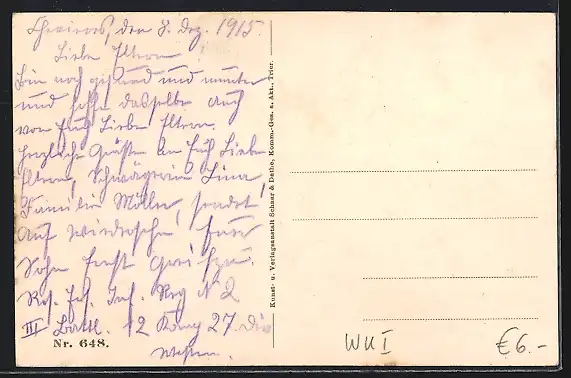 den 8. Dez. 1915.
Liebe Eltern!
Bin noch gesund und munter
und hoffe dasselbe auch
von Euch Liebe Eltern.
Herzliche Grüße an Euch Liebe
Eltern, Schwägerin Lina,
Familie Möller, sendet
auf Wiedersehen Euer
Sohn Ernst
Res. Ers. Inf. Reg N 2
III Batl. 12 Komp 27. Div
Westen.
Nr. 648.
Kunst- u. Verlagsanstalt Schaar & Dathe, Komm.-Ges. a. Akt., Trier.
WK I
€6.-